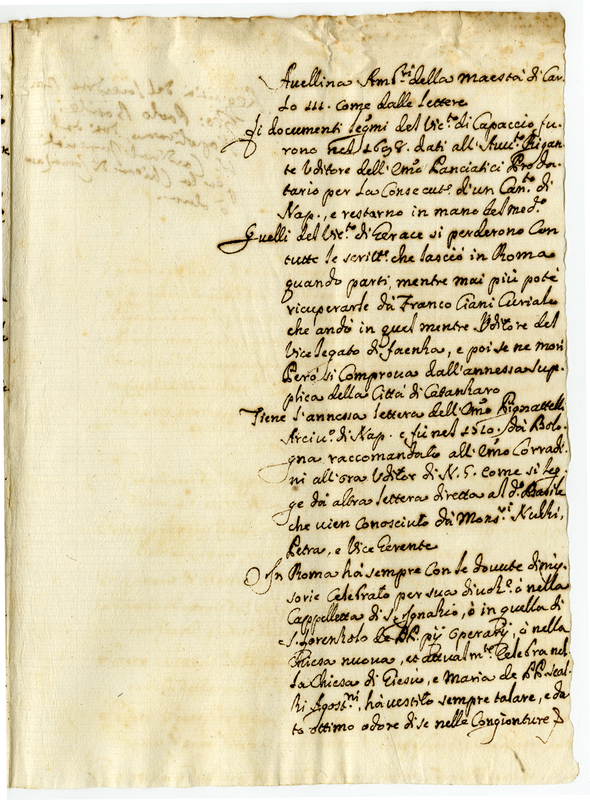 Avellina Amb.ri della maestà di Car-
lo III. come dalle lettere
Li documenti legmi del Vic.to di Capaccio fu-
rono nel 1698. dati all'Aud.re Rigan-
te Uditore dell'Emo Panciatici Proda-
tario per la Consecut. d'un Can.to di
Nap., e restarno in mano del med.o
Quelli del Vic.to di Gerace si perderono Con
tutte le scritt.e che lasciò in Roma
quando partì, mentre mai più potè
ricuperarle dà Franco Ciani Curiale
che andò in quel mentre Uditore del
Vicelegato di faenza, e poi se ne morì
Però si Comprova dall'annessa sup-
plica della Città di Catanzaro
Tiene l'annessa lettera dell'Emo Pignattelli
Arciv.o di Nap. e fù nel 1710. dà Bolo-
gna raccomandato all'Emo Corradi-
ni all'ora Uditor di N. S. Come si leg-
ge dà altra lettera diretta al d.o Basile
che vien Conosciuto dà Mons.ri Nuzzi,
Petra, e Vice Gerente
In Roma hà sempre Con le dovute dimis-
sorie Celebrato per sua divot.e ò nella
Cappelletta di S. Ignazio, ò in quella di
S. Lorenzolo de PP. pij Operarij, ò nella
Chiesa nuova, et attualm.te Celebra nel
la Chiesa di Giesù, e Maria de PP. scal-
zi Agost.ni, hà vestito sempre talare, e da
to ottimo odore di se nelle Congionture